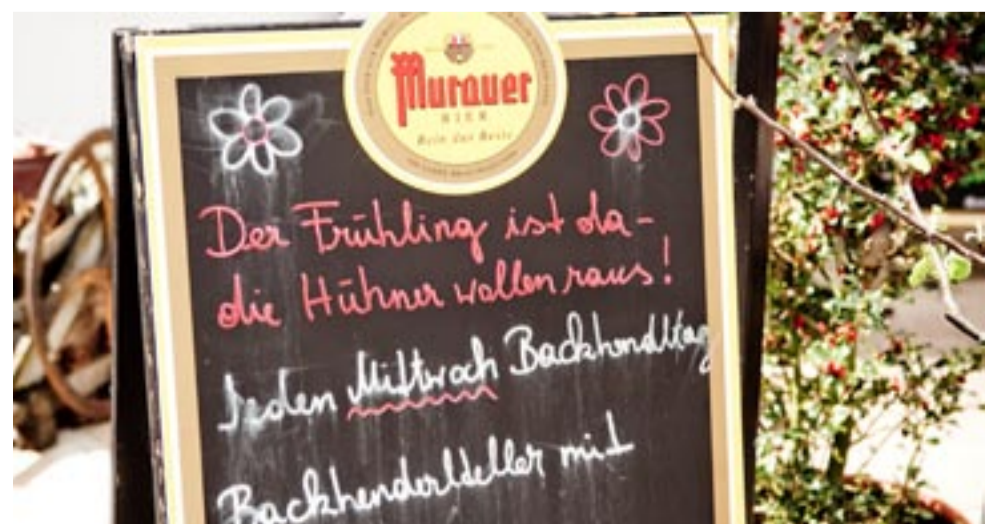 Murauer
BIER
Rein das Beste
Der Frühling ist da -
die Hühner wollen raus!
Jeden Mittwoch Backhendltag
Backhenderlteller mit